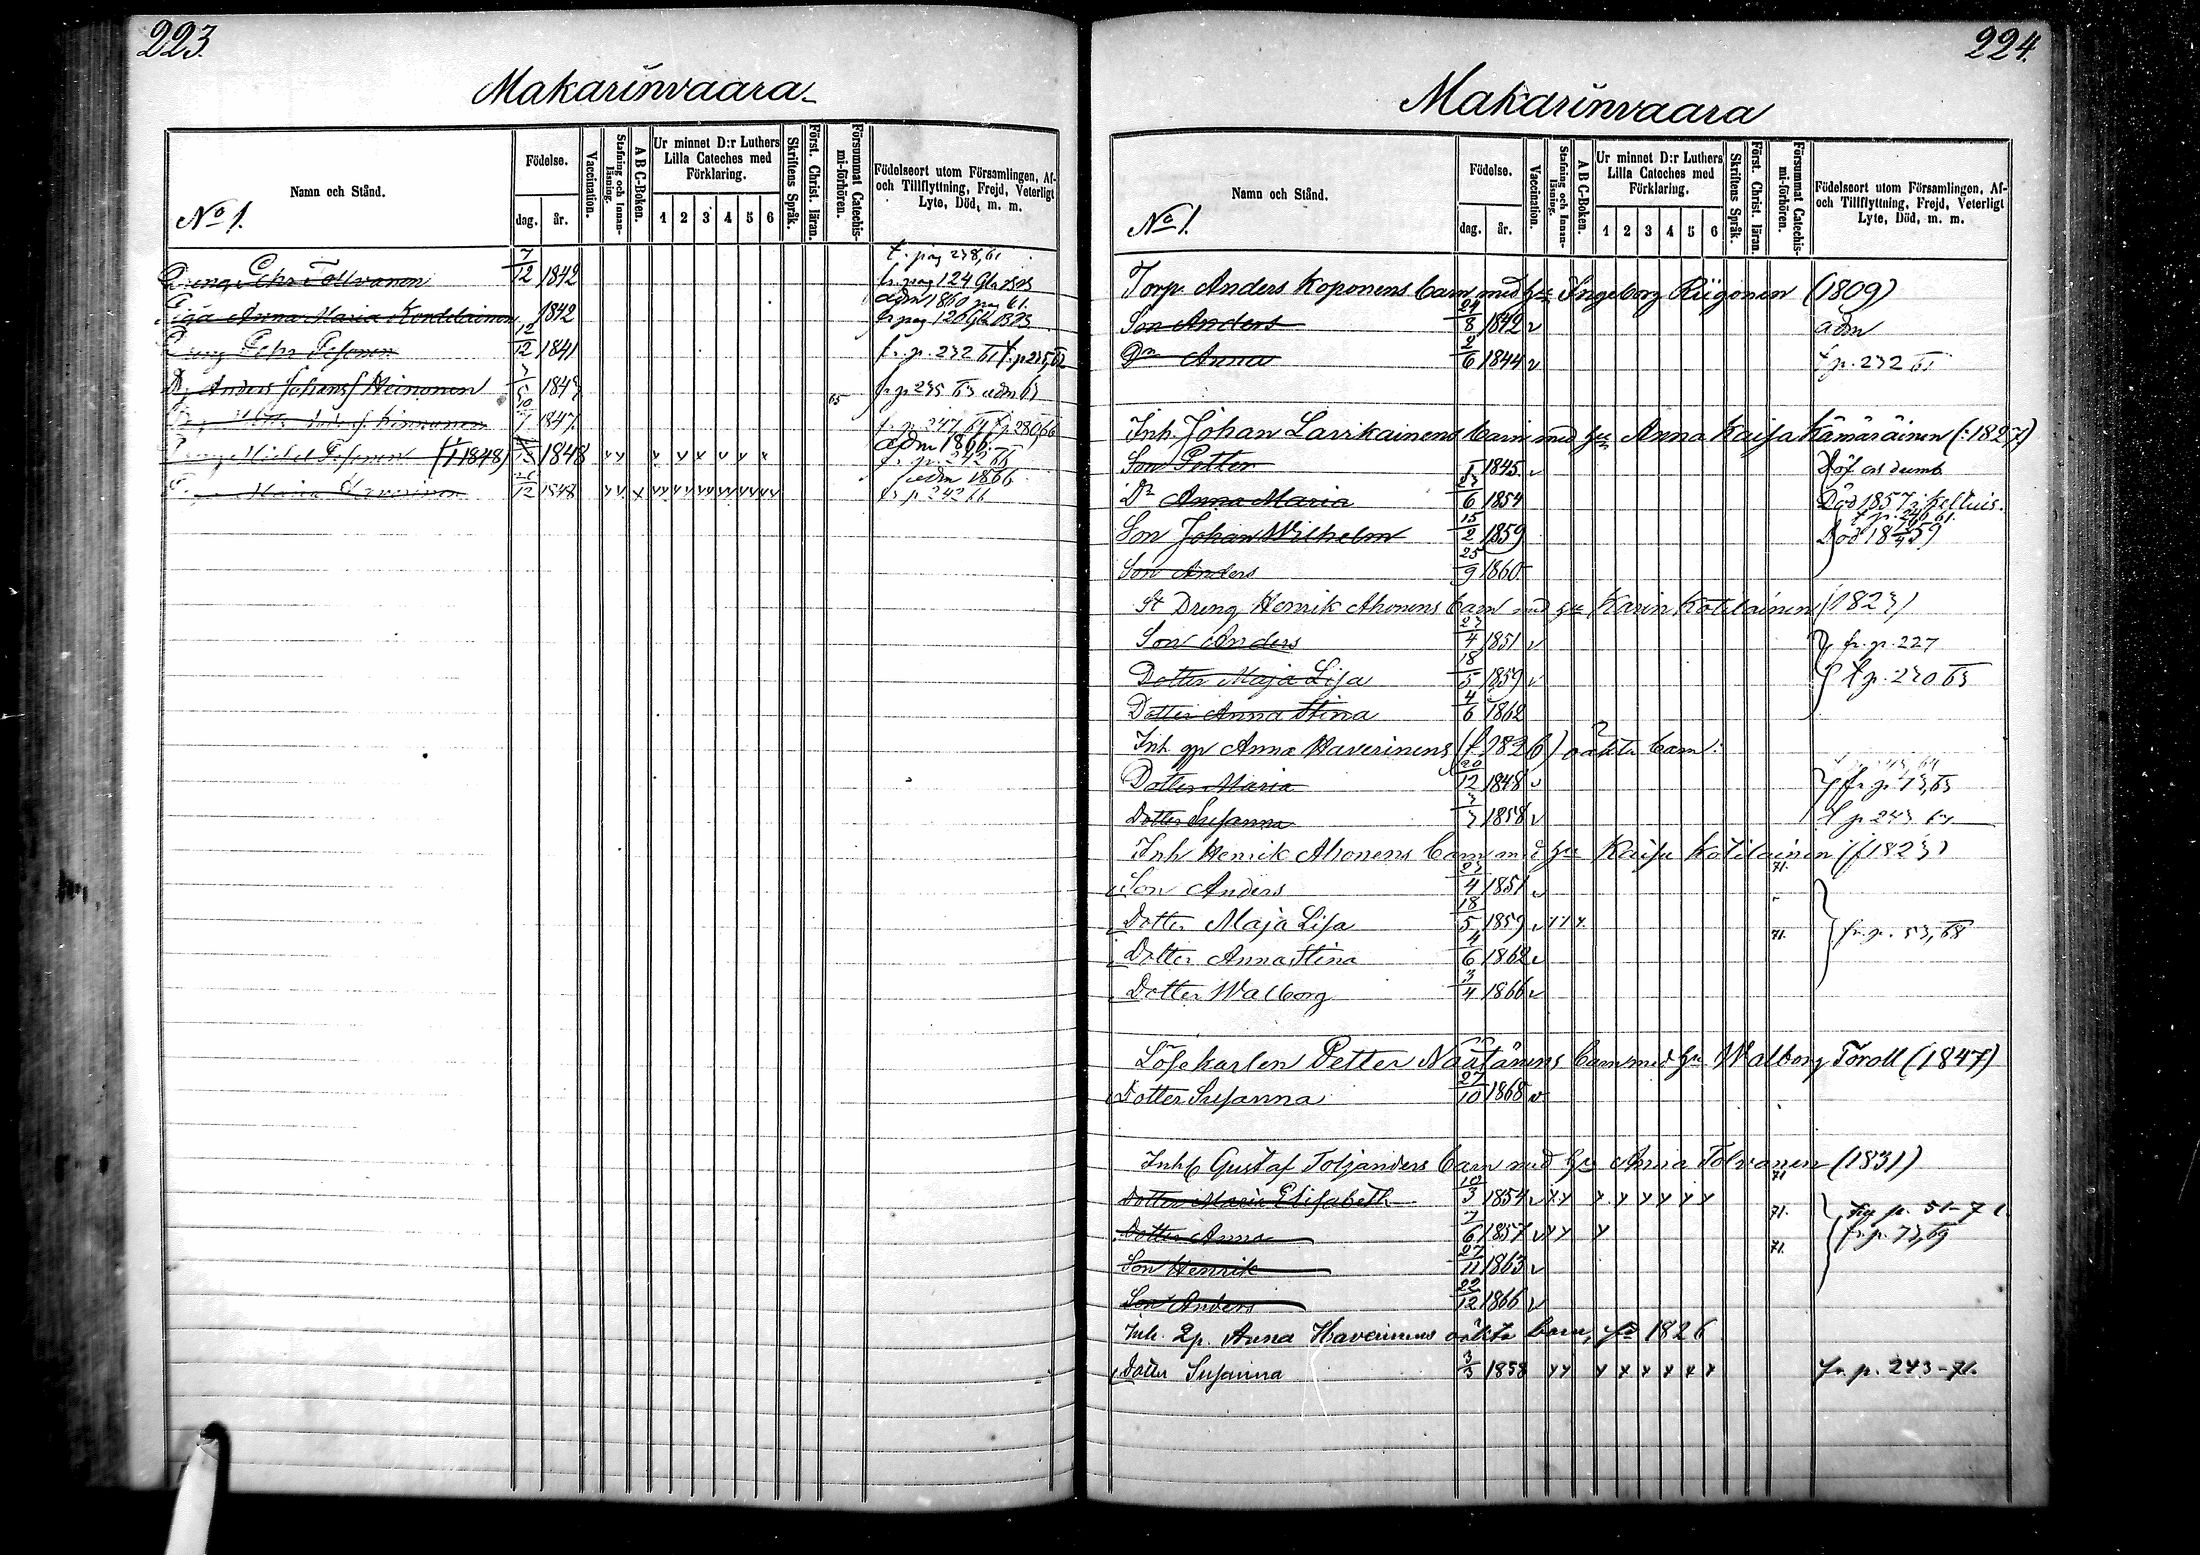 223.
Makarinvaara
Namn och Stånd.
No 1.
Födelse.
dag. år.
Vaccination.
Stafning och Innan-läsning.
A B C-Boken.
Ur minnet D:r Luthers Lilla Cateches med Förklaring.
1 2 3 4 5 6
Skriftens Språk.
Först. Christ. läran.
Försummat Catechis-mi-förhören.
Födelseort utom Församlingen, Af- och Tillflyttning, Frejd, Veterligt Lyte, Död, m. m.
t. pag 238,61
Dreng Petr Tolvanen 7/12 1842 fr pag 124
adm 1860 pag 61.
Piga Anna Maria Kontilainen 1842 fr pag 126
Dreng Petr Pesonen 12/12 1841 fr. p. 232 61
D. Anders Johansf Heinonen 1843 fr p 235 63 adm 63
1847 fr. p. 247 64 t p 280 66
adm 1866
Dreng Michel Pesonen (1848) 1848 fr. p. 242 66
adm 1866
Maria Haverinen 20/12 1848 fr. p 242 66
224.
Makarinvaara
Namn och Stånd.
No 1.
Födelse.
dag. år.
Vaccination.
Stafning och Innan-läsning.
A B C-Boken.
Ur minnet D:r Luthers Lilla Cateches med Förklaring.
1 2 3 4 5 6
Skriftens Språk.
Först. Christ. läran.
Försummat Catechis-mi-förhören.
Födelseort utom Församlingen, Af- och Tillflyttning, Frejd, Veterligt Lyte, Död, m. m.
Torp. Anders Koponens barn med hu Ingeborg Riigonen (1809)
Son Anders 24/8 1842 v adm
Dr Anna 2/6 1844 v t p. 232 61
Inh. Johan Lavikainens barn med hu Anna Kaisa Kämäräinen (:1827)
Son Petter 1845 v döf o dumb
Dr Anna Maria 23/6 1854 Död 1857 i Keltuis.
t p. 246 61.
Son Johan Wilhelm 15/2 1859 Död 18 59
Son Anders 25/9 1860
St Dreng Henrik Ahonens barn med hu Karin Kotilainen (1823)
Son Anders 23/4 1851 v fr. p. 227
Dotter Maja Lisa 18/5 1859 v t p. 230 63
Dotter Anna Stina 4/6 1862
Inh. qp Anna Haverinens (f. 1826) oäkta barn:
Dotter Maria 20/12 1848 v fr p. 73,63
Dotter Susanna 3/3 1858 v t p 243 64
Inh Henrik Ahonens barn med hu Kaisa Kotilainen (f 1823)
Son Anders 23/4 1851 v 71.
Dotter Maja Lisa 18/5 1859 v 71. fr. p. 53,68
Dotter Anna Stina 4/6 1862 v
Dotter Walborg 3/4 1866 v
Lösekarlen Petter Näätänens barn med hu Walborg Toroll (1847)
Dotter Susanna 27/10 1868 v
Inh Gustaf Toljanders barn med hu Anna Tolvanen (1831)
Dotter Maria Elisabeth 10/3 1854 v 71
Dotter Anna 7/6 1857 v 71. p. 51-71.
Son Henrik 27/11 1863 v 71. fr. p. 73,69
Son Anders 22/12 1866 v
Inh. Qp. Anna Haverinens oäkta barn, fd 1826
Dotter Susanna 3/3 1858 fr p. 243-71.